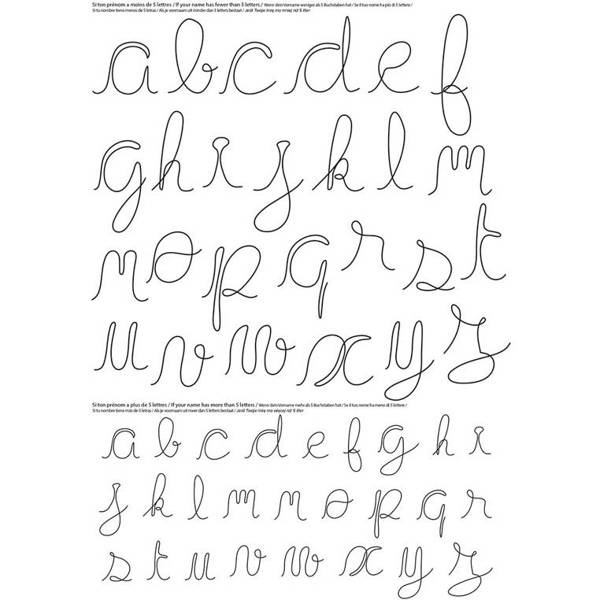 Si ton prénom a moins de 5 lettres / If your name has fewer than 5 letters / Wenn dein Vorname weniger als 5 Buchstaben hat / Se il tuo nome ha più di 5 lettere /
Si tu nombre tiene menos de 5 letras / Als je voornaam uit minder dan 5 letters bestaat /
a b c d e f
g h i j k l m
n o p q r s t
u v w x y z
Si ton prénom a plus de 5 lettres / If your name has more than 5 letters / Wenn dein Vorname mehr als 5 Buchstaben hat / Se il tuo nome ha meno di 5 lettere /
Si tu nombre tiene más de 5 letras / Als je voornaam uit meer dan 5 letters bestaat /
a b c d e f g h i
j k l m n o p q r
s t u v w x y z